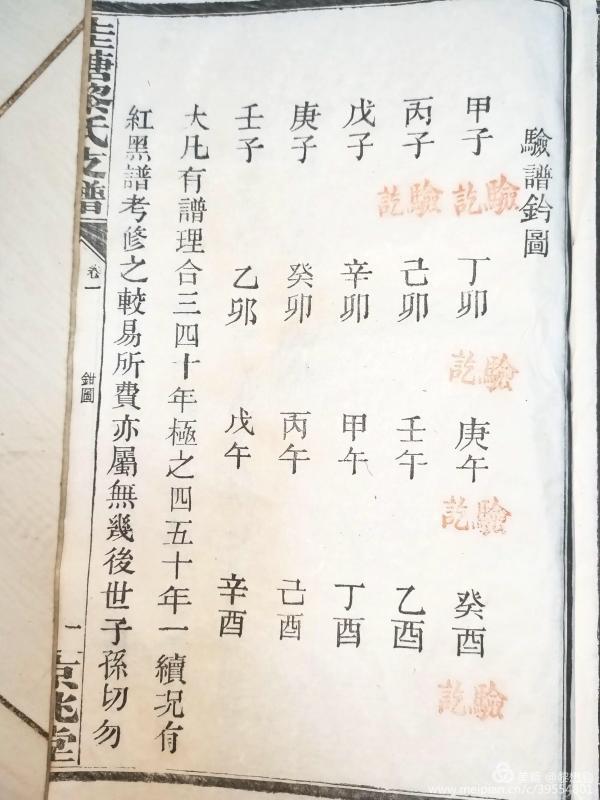 驗譜鈐圖
甲子 驗訖 丁卯 驗訖 庚午 驗訖 癸酉 驗訖
丙子 驗訖 己卯 壬午 乙酉
戊子 辛卯 甲午 丁酉
庚子 癸卯 丙午 己酉
壬子 乙卯 戊午 辛酉
大凡有譜理合三四十年極之四五十年一續况有
紅黑譜考修之較易所費亦屬無幾後世子孫切勿
塘黎氏支譜
卷一
鉗圖
一
京兆堂
美篇
www.meipian.cn/c/39554801